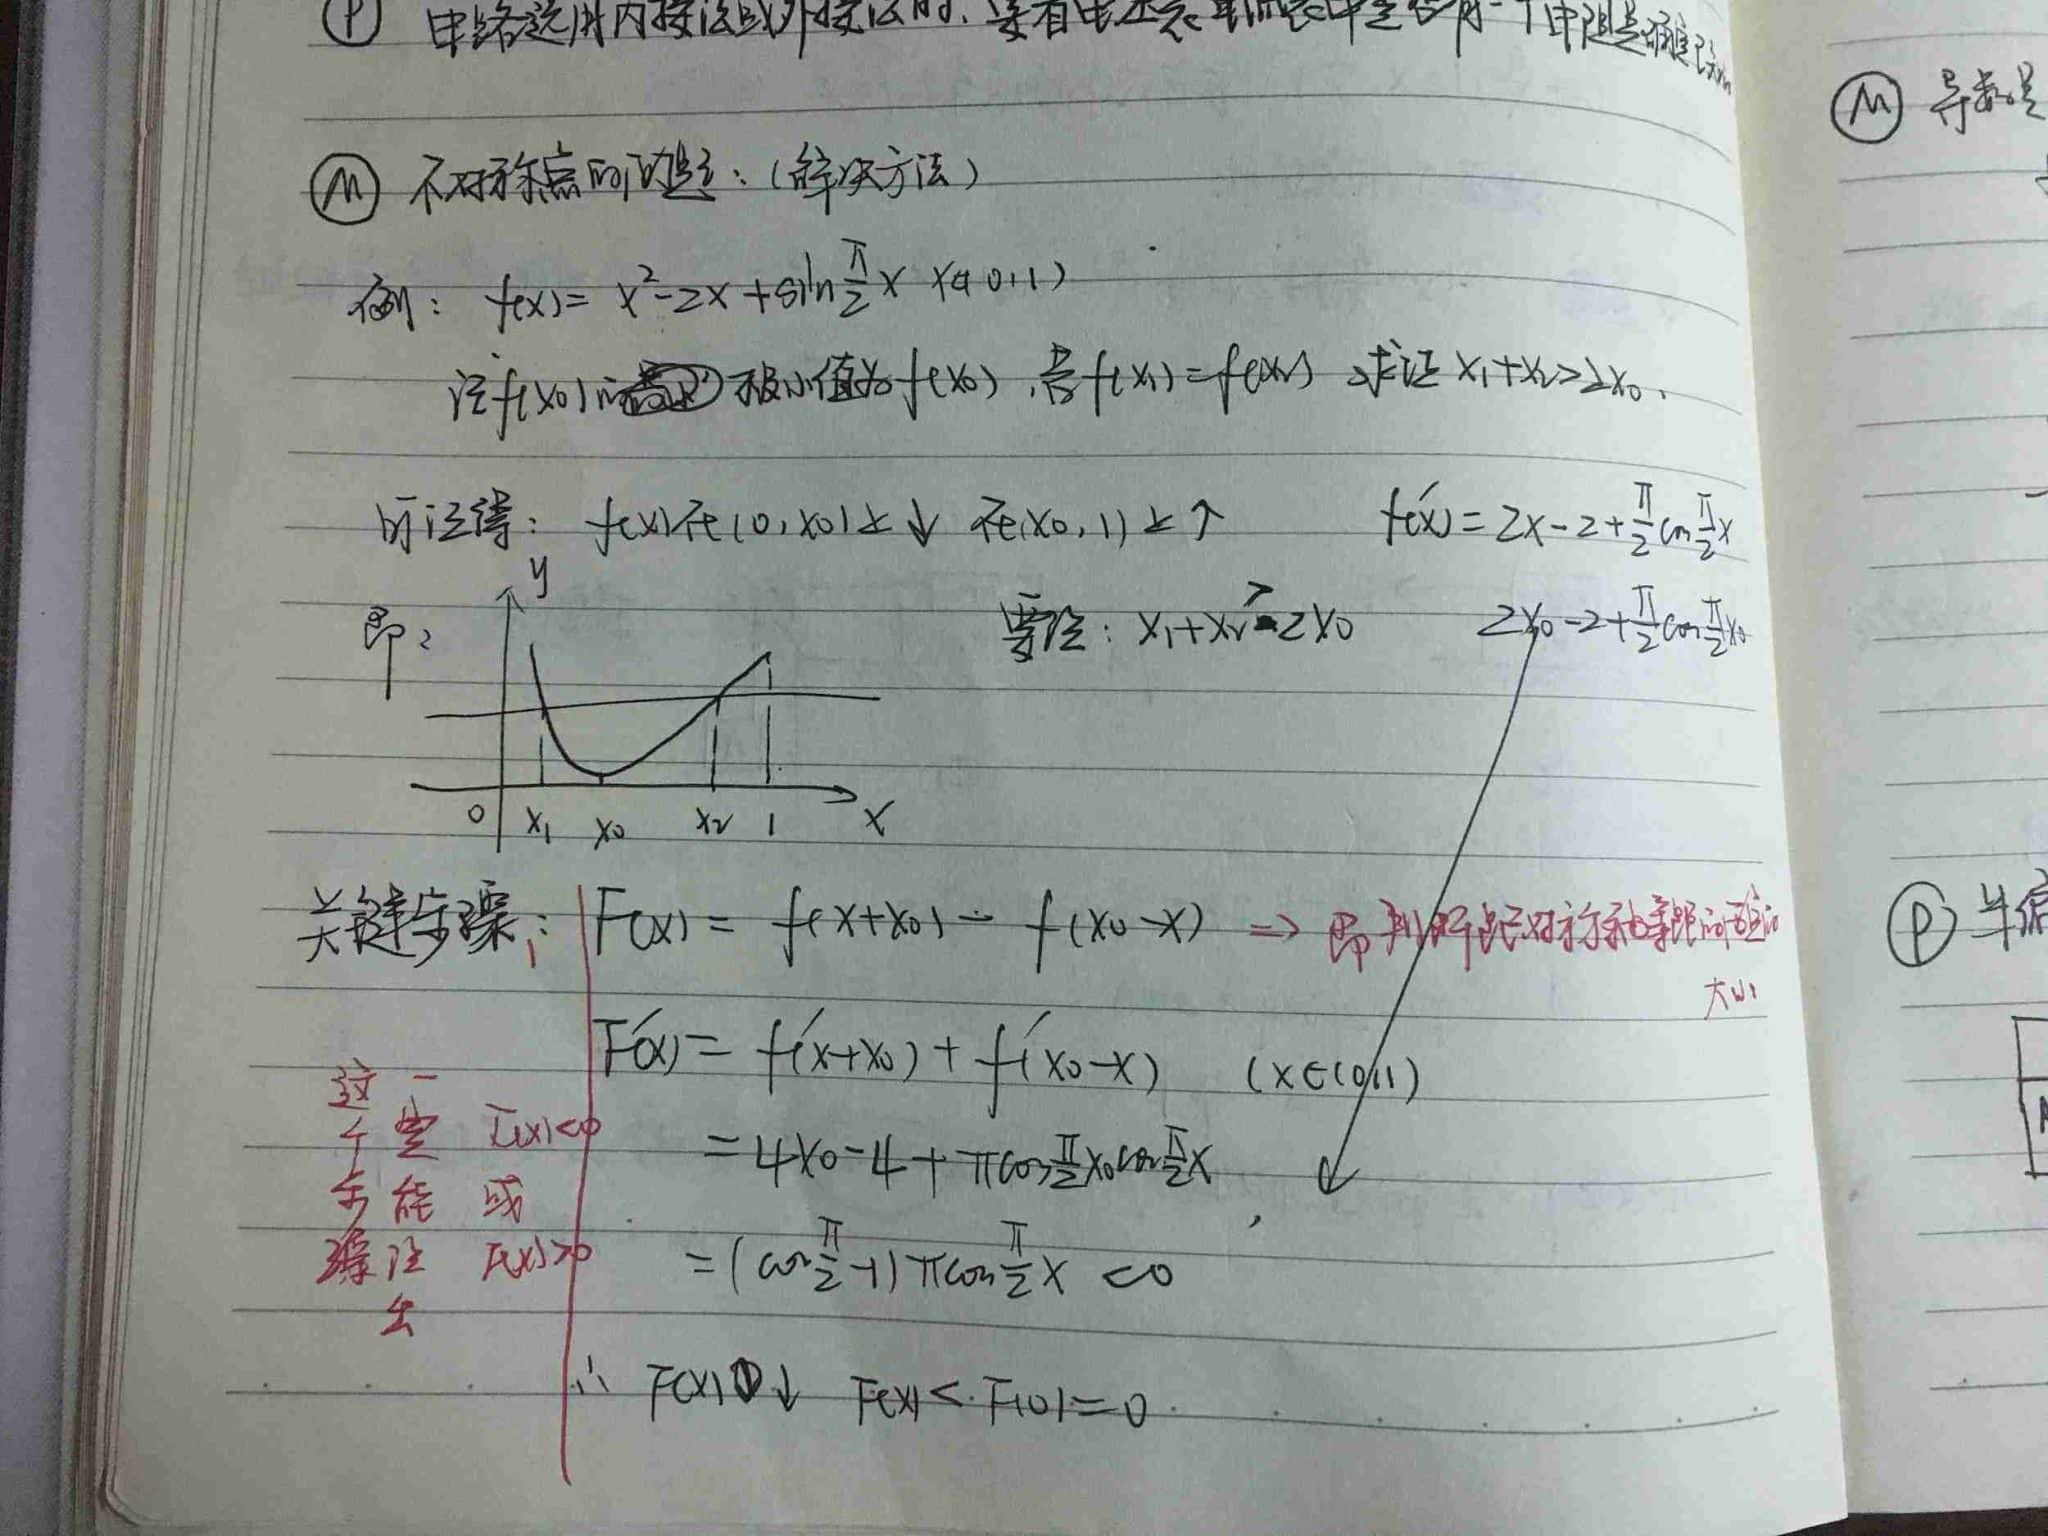 Ⓟ 电路选用内接法或外接法时,要看电压表电流表中是否有一个电阻是准确已知
Ⓜ 不对称点的问题:(解决方法)
例: f(x)= x²-2x+sin π/2 x x∈(0,1)
极小值为f(x₀),若f(x₁)=f(x₂) 求证 x₁+x₂>2x₀.
易证得: f(x)在(0,x₀)上↓ 在(x₀,1)上↑ f'(x)=2x-2+π/2 cos π/2 x
即: 需证: x₁+x₂>2x₀ 2x₀-2+π/2 cos π/2 x₀
y
0 x₁ x₀ x₂ 1 x
关键步骤: F(x)= f(x+x₀)- f(x₀-x) ⇒ 即判断距对称轴等距的
大小
F'(x)= f'(x+x₀)+ f'(x₀-x) (x∈(0,1)
= 4x₀-4+πcos π/2 x₀ cos π/2 x
=(cos π/2 -1)πcos π/2 x <0
∴ F(x)↓ F(x)< F(0)=0
这个步骤
一定能证出
F(x)<0
或
F(x)>0
Ⓜ 导数是
Ⓟ 半偏